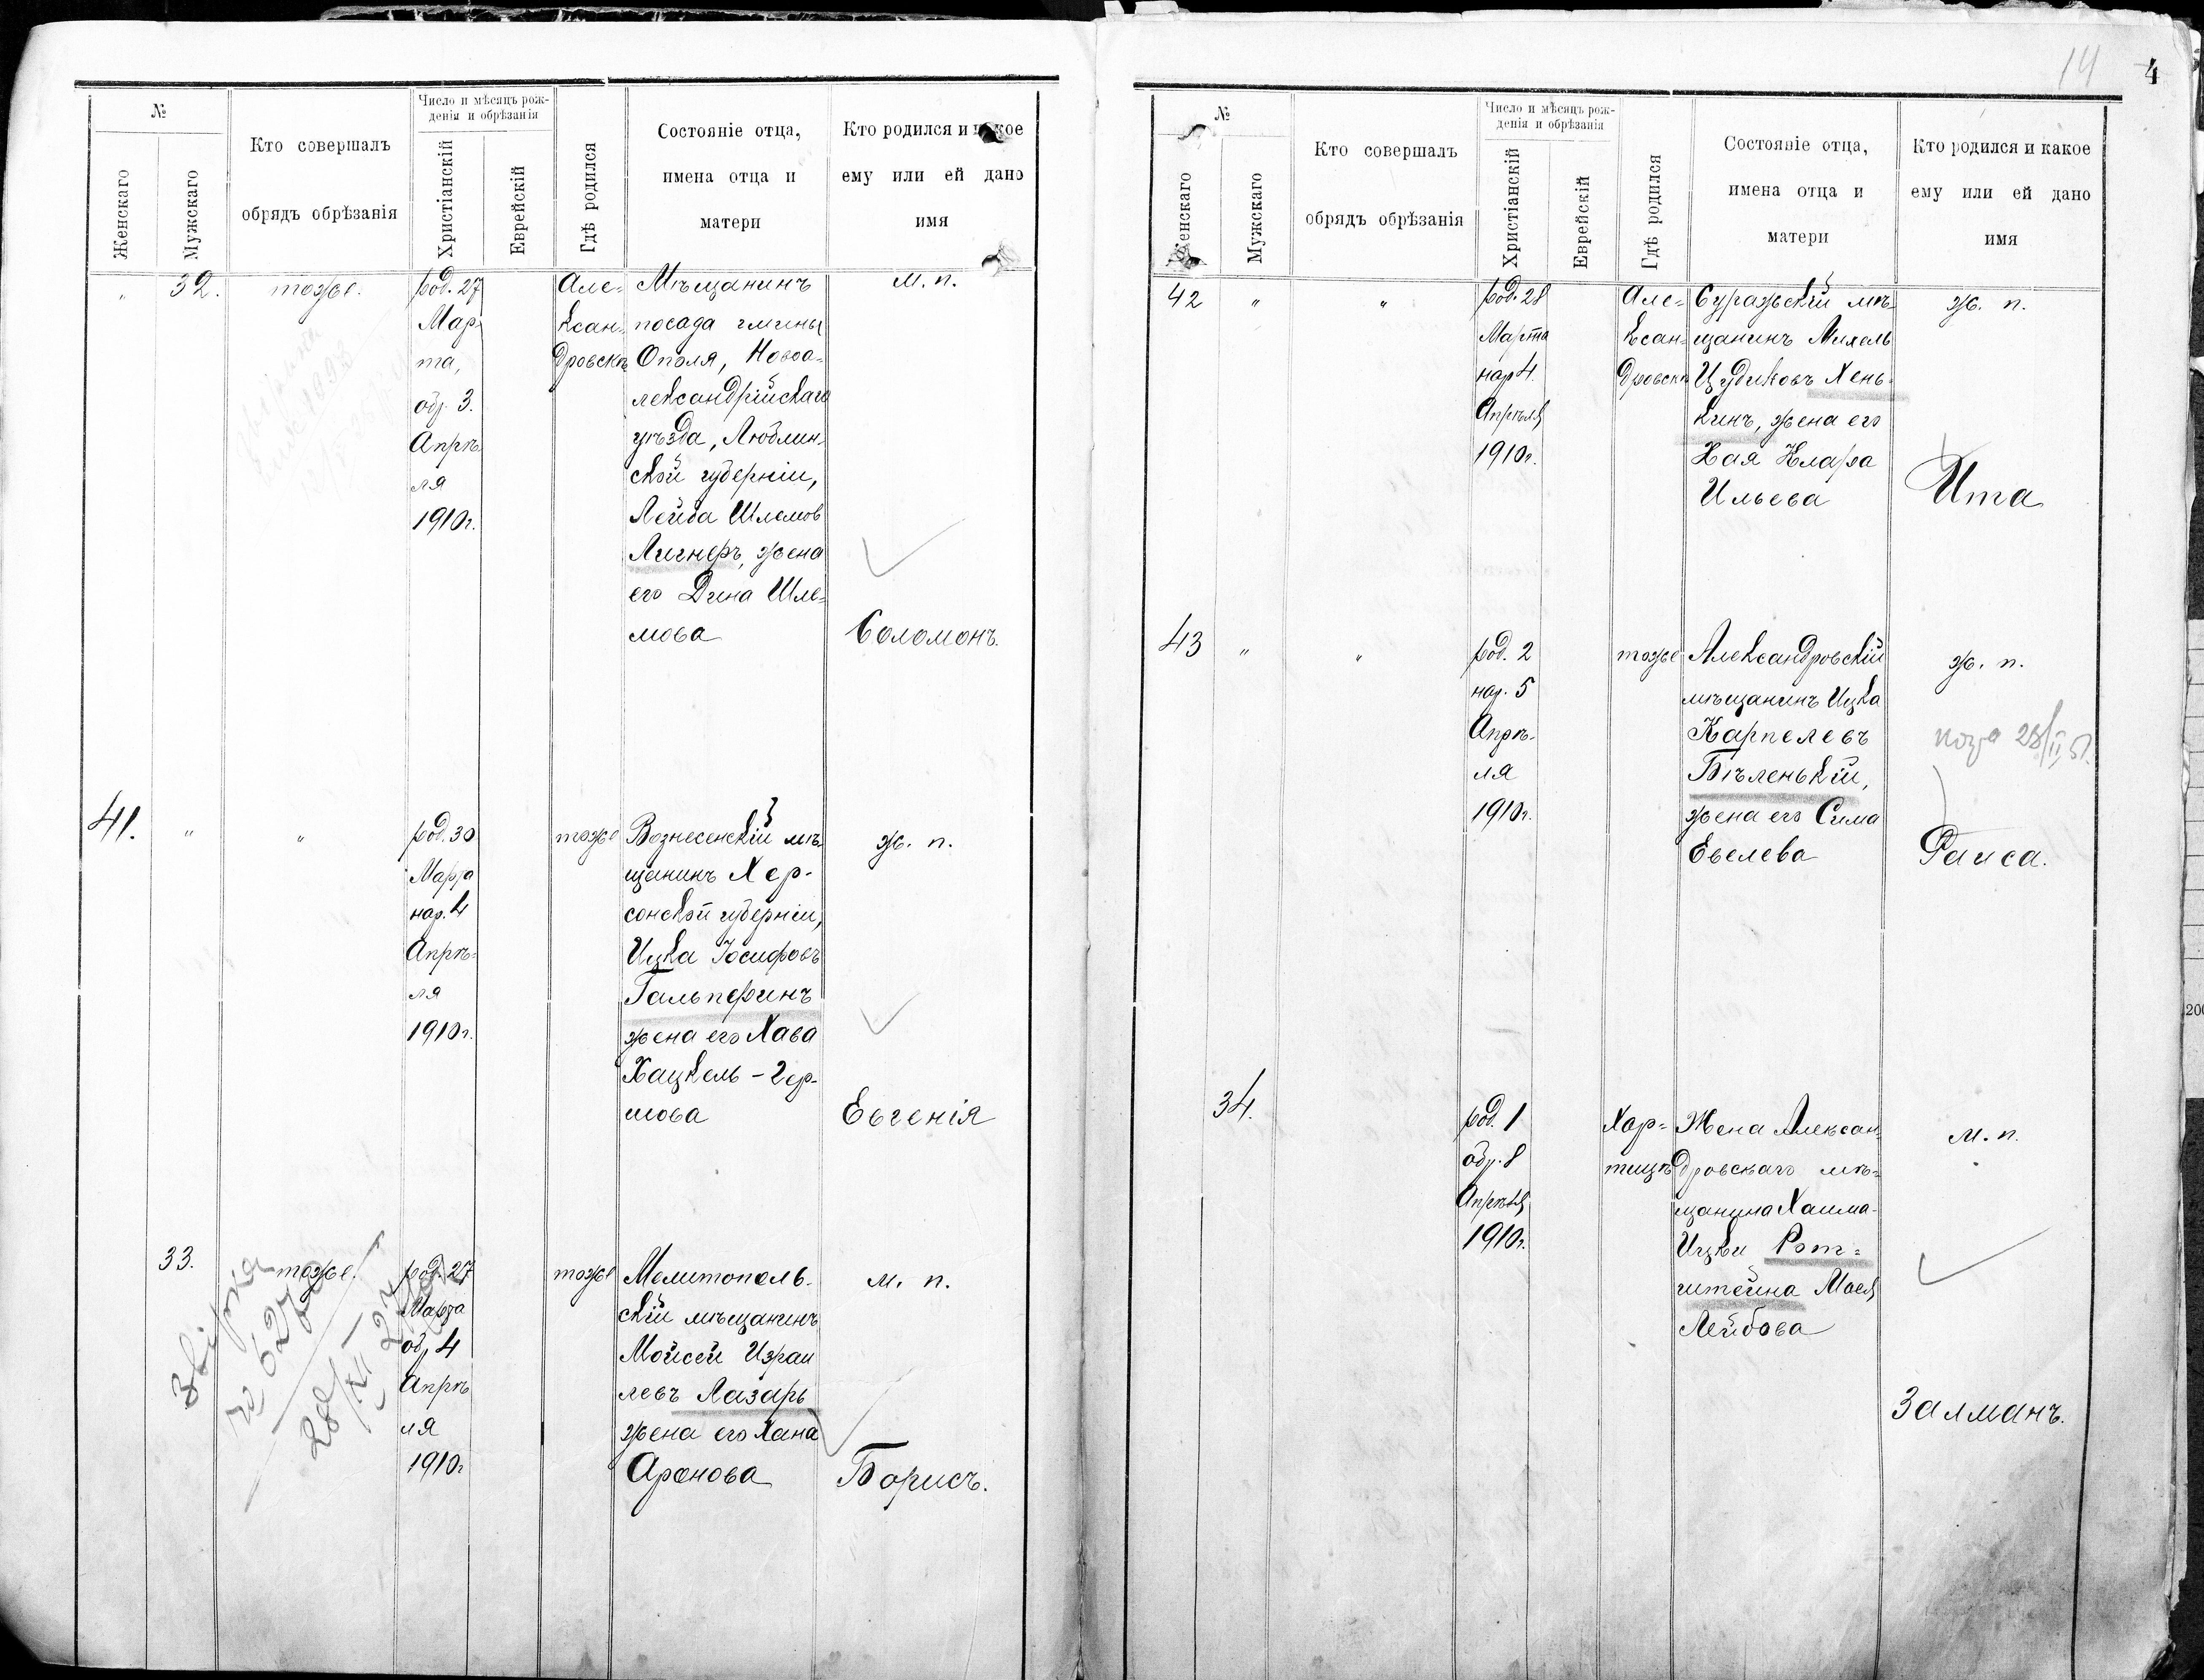 №
Женскаго
Мужскаго
Кто совершалъ
обрядъ обрѣзанія
Число и мѣсяцъ рож-
денія и обрѣзанія
Христіанскій
Еврейскій
Гдѣ родился
Состояніе отца,
имена отца и
матери
Кто родился и какое
ему или ей дано
имя
„
32.
тоже.
род. 27
Мар-
та,
обр. 3.
Апрѣ-
ля
1910г.
Але-
ксан-
дровскѣ
Мѣщанинъ
посада гмины
Ополя, Новоа-
лександрійскаго
уѣзда, Люблин-
ской губерніи,
Лейба Шлемов
Лигнеръ, жена
его Дина Шле-
мова
м. п.
Соломонъ.
41.
„
„
род. 30
Марта
нар. 4
Апрѣ-
ля
1910г.
тоже
Вознесенскій мѣ-
щанинъ Хер-
сонской губерніи,
Ицка Іосифовъ
Гальперинъ
жена его Хава
Хацкель-Гер-
шова
ж. п.
Евгенія
33.
тоже.
род. 27
Марта
обр 4
Апрѣ
ля
1910г
тоже
Мелитополь-
скій мѣщанинъ
Мойсей Израи
левъ Лазарь
жена его Хана
Аронова
м. п.
Борисъ.
14
4
№
Женскаго
Мужскаго
Кто совершалъ
обрядъ обрѣзанія
Число и мѣсяцъ рож-
денія и обрѣзанія
Христіанскій
Еврейскій
Гдѣ родился
Состояніе отца,
имена отца и
матери
Кто родился и какое
ему или ей дано
имя
42
„
„
род. 28
Марта
нар 4.
Апрѣля
1910г.
Але-
ксан-
дровскѣ
Суражскій мѣ-
щанинъ Михель
Цудиковъ Хень-
кинъ, жена его
Хая Клара
Ильева
ж. п.
Ита
43
„
„
род. 2
нар. 5
Апрѣ-
ля
1910г.
тоже
Александровскій
мѣщанинъ Ицка
Карпелевъ
Бѣленькій,
жена его Сима
Евелева
ж. п.
28/II 51.
Раиса.
34.
род. 1
обр. 8
Апрѣля
1910г.
Хор-
тицѣ
Жена Алексан-
дровскаго мѣ-
щанина Хаима-
Ицки Рот-
штейна Мася
Лейбова
м. п.
Залманъ.